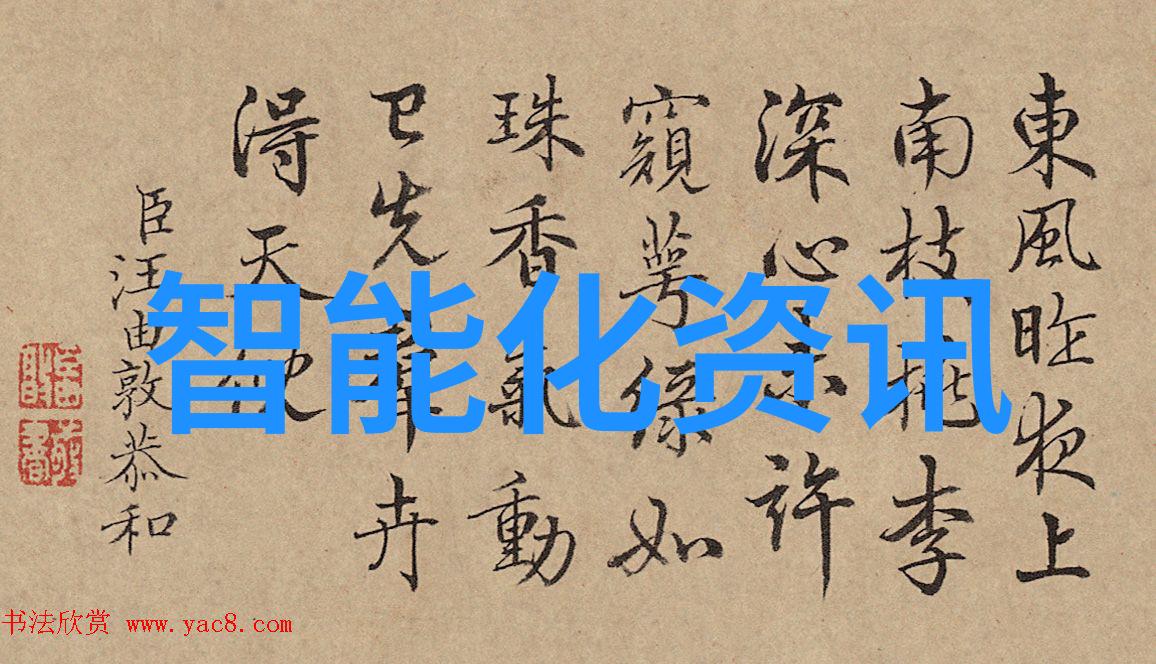 東風昨夜上
南枝桃李
深心許
窺萼綠如
珠香氣動
已先羣卉
得天
臣汪由敦恭和
智能化资讯
书法欣赏 www.yac8.com